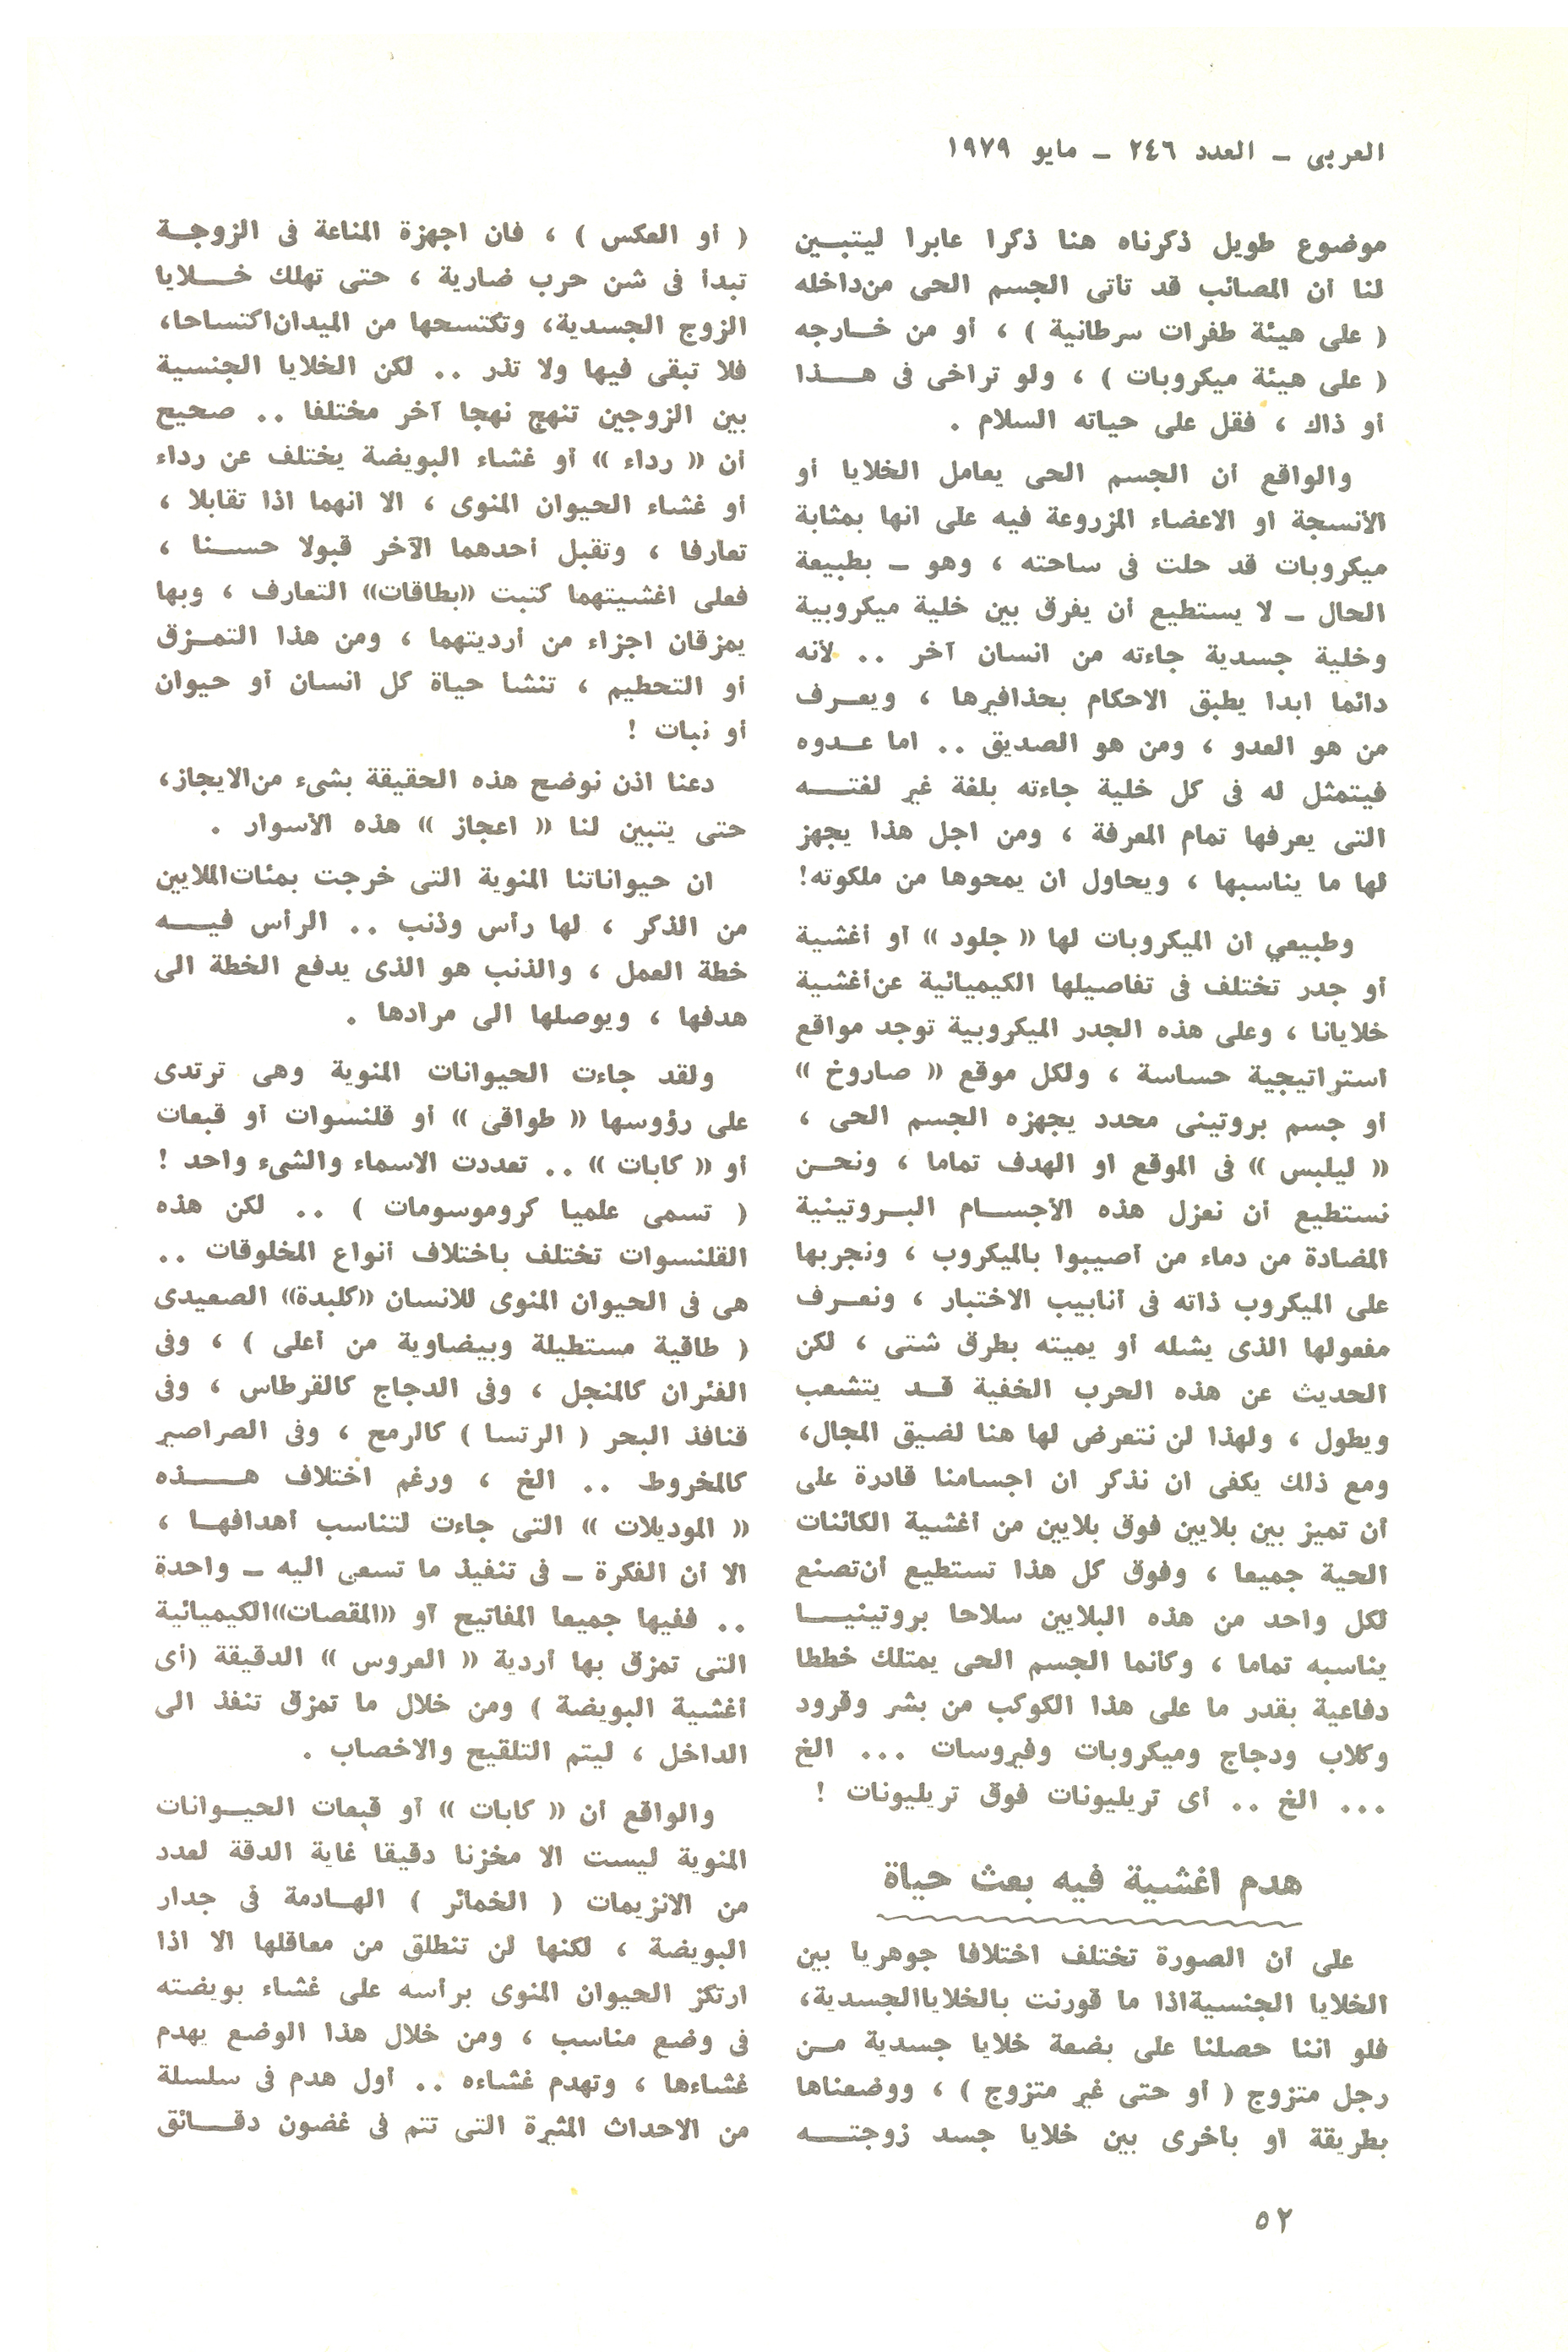 العربى - العدد ٢٤٦ - مايو ١٩٧٩
موضوع طويل ذكرناه هنا ذكرا عابرا ليتبين
لنا أن المصائب قد تأتى الجسم الحى من داخله
( على هيئة طفرات سرطانية ) ، أو من خارجه
( على هيئة ميكروبات ) ، ولو تراخى فى هذا
أو ذاك ، فقل على حياته السلام .
والواقع أن الجسم الحى يعامل الخلايا أو
الأنسجة او الاعضاء المزروعة فيه على انها بمثابة
ميكروبات قد حلت فى ساحته ، وهو - بطبيعة
الحال - لا يستطيع أن يفرق بين خلية ميكروبية
وخلية جسدية جاءته من انسان آخر .. لأنه
دائما ابدا يطبق الاحكام بحذافيرها ، ويعرف
من هو العدو ، ومن هو الصديق .. اما عدوه
فيتمثل له فى كل خلية جاءته بلغة غير لغته
التى يعرفها تمام المعرفة ، ومن اجل هذا يجهز
لها ما يناسبها ، ويحاول ان يمحوها من ملكوته!
وطبيعي أن الميكروبات لها « جلود » أو أغشية
أو جدر تختلف فى تفاصيلها الكيميائية عن أغشية
خلايانا ، وعلى هذه الجدر الميكروبية توجد مواقع
استراتيجية حساسة ، ولكل موقع « صاروخ »
أو جسم بروتينى محدد يجهزه الجسم الحى ،
« ليلبس » فى الموقع او الهدف تماما ، ونحن
نستطيع أن نعزل هذه الأجسام البروتينية
المضادة من دماء من أصيبوا بالميكروب ، ونجربها
على الميكروب ذاته فى أنابيب الاختبار ، ونعرف
مفعولها الذى يشله أو يميته بطرق شتى ، لكن
الحديث عن هذه الحرب الخفية قد يتشعب
ويطول ، ولهذا لن نتعرض لها هنا لضيق المجال،
ومع ذلك يكفى ان نذكر ان اجسامنا قادرة على
أن تميز بين بلايين فوق بلايين من أغشية الكائنات
الحية جميعا ، وفوق كل هذا تستطيع أن تصنع
لكل واحد من هذه البلايين سلاحا بروتينيا
يناسبه تماما ، وكأنما الجسم الحى يمتلك خططا
دفاعية بقدر ما على هذا الكوكب من بشر وقرود
وكلاب ودجاج وميكروبات وفيروسات ... الخ
... الخ .. أى تريليونات فوق تريليونات !
هدم اغشية فيه بعث حياة
على أن الصورة تختلف اختلافا جوهريا بين
الخلايا الجنسية اذا ما قورنت بالخلايا الجسدية،
فلو اننا حصلنا على بضعة خلايا جسدية من
رجل متزوج ( أو حتى غير متزوج ) ، ووضعناها
بطريقة أو بأخرى بين خلايا جسد زوجته
( أو العكس ) ، فان اجهزة المناعة فى الزوجة
تبدأ فى شن حرب ضارية ، حتى تهلك خلايا
الزوج الجسدية، وتكتسحها من الميدان اكتساحا،
فلا تبقى فيها ولا تذر .. لكن الخلايا الجنسية
بين الزوجين تنهج نهجا آخر مختلفا .. صحيح
أن « رداء » أو غشاء البويضة يختلف عن رداء
أو غشاء الحيوان المنوى ، الا انهما اذا تقابلا ،
تعارفا ، وتقبل أحدهما الآخر قبولا حسنا ،
فعلى اغشيتهما كتبت «بطاقات» التعارف ، وبها
يمزقان اجزاء من أرديتهما ، ومن هذا التمزق
أو التحطيم ، تنشا حياة كل انسان أو حيوان
أو نبات !
دعنا اذن نوضح هذه الحقيقة بشىء من الايجاز،
حتى يتبين لنا « اعجاز » هذه الأسوار .
ان حيواناتنا المنوية التى خرجت بمئات الملايين
من الذكر ، لها رأس وذنب .. الرأس فيه
خطة العمل ، والذنب هو الذى يدفع الخطة الى
هدفها ، ويوصلها الى مرادها .
ولقد جاءت الحيوانات المنوية وهى ترتدى
على رؤوسها « طواقى » أو قلنسوات أو قبعات
أو « كابات » .. تعددت الاسماء والشىء واحد !
( تسمى علميا كروموسومات ) .. لكن هذه
القلنسوات تختلف باختلاف أنواع المخلوقات ..
هى فى الحيوان المنوى للانسان «كلبدة» الصعيدى
( طاقية مستطيلة وبيضاوية من أعلى ) ، وفى
الفئران كالمنجل ، وفى الدجاج كالقرطاس ، وفى
قنافذ البحر ( الرتسا ) كالرمح ، وفى الصراصير
كالمخروط .. الخ ، ورغم اختلاف هذه
« الموديلات » التى جاءت لتناسب أهدافها ،
الا أن الفكرة - فى تنفيذ ما تسعى اليه - واحدة
.. ففيها جميعا المفاتيح أو «المقصات» الكيميائية
التى تمزق بها أردية « العروس » الدقيقة (أى
أغشية البويضة ) ومن خلال ما تمزق تنفذ الى
الداخل ، ليتم التلقيح والاخصاب .
والواقع أن « كابات » أو قبعات الحيوانات
المنوية ليست الا مخزنا دقيقا غاية الدقة لعدد
من الانزيمات ( الخمائر ) الهادمة فى جدار
البويضة ، لكنها لن تنطلق من معاقلها الا اذا
ارتكز الحيوان المنوى برأسه على غشاء بويضته
فى وضع مناسب ، ومن خلال هذا الوضع يهدم
غشاءها ، وتهدم غشاءه .. أول هدم فى سلسلة
من الاحداث المثيرة التى تتم فى غضون دقائق
٥٢